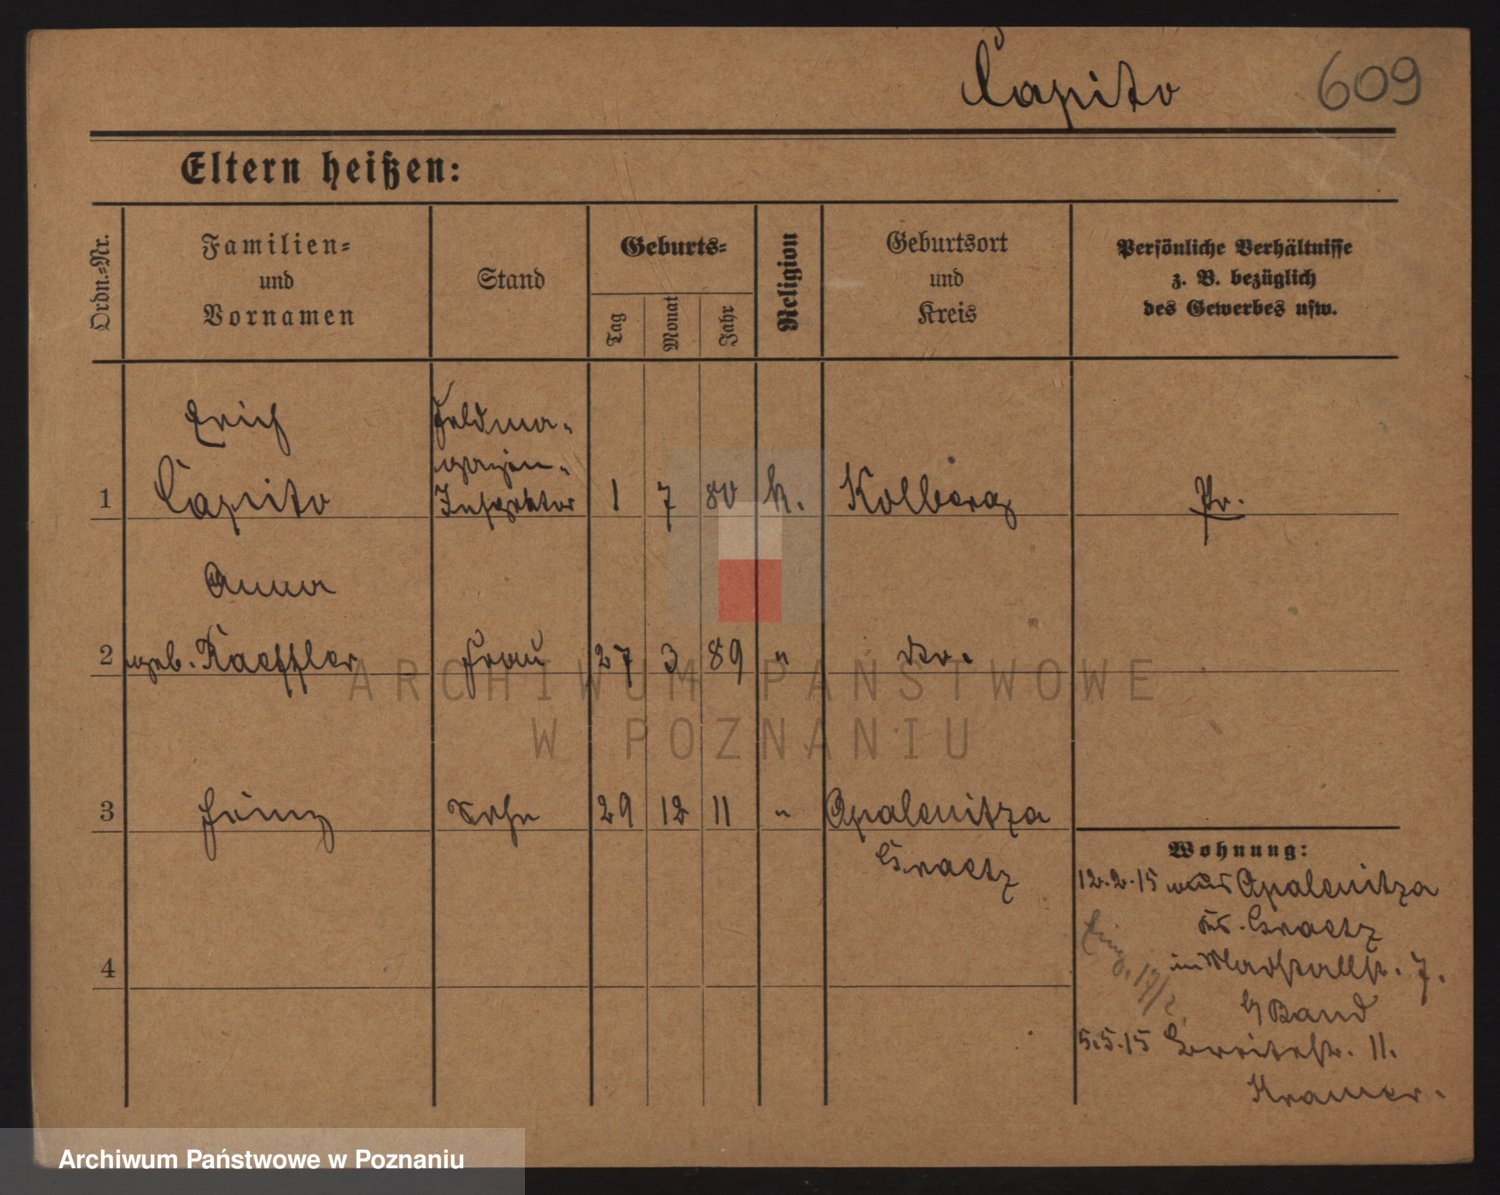 Capito 609
Eltern heißen:
Ordn.=Nr.
Familien=
und
Vornamen
Stand
Geburts=
Tag
Monat
Jahr
Religion
Geburtsort
und
Kreis
Persönliche Verhältnisse
z. B. bezüglich
des Gewerbes usw.
Erich Feldma-
gazin-
1 Capito Inspektor 1 7 80 k. Kolberg Pr.
Anna
2 geb. Kaeffler Frau 27 3 89 " do.
3 Heinz Sohn 29 12 11 " Opalenitza
Graetz
4
Wohnung:
12.2.15 aus Opalenitza
Kr. Graetz
Marstallstr. 7.
b/ Band
Eing. 17/2.
5.5.15 Breitestr. 11.
Kramer.
ARCHIWUM PAŃSTWOWE
W POZNANIU
Archiwum Państwowe w Poznaniu